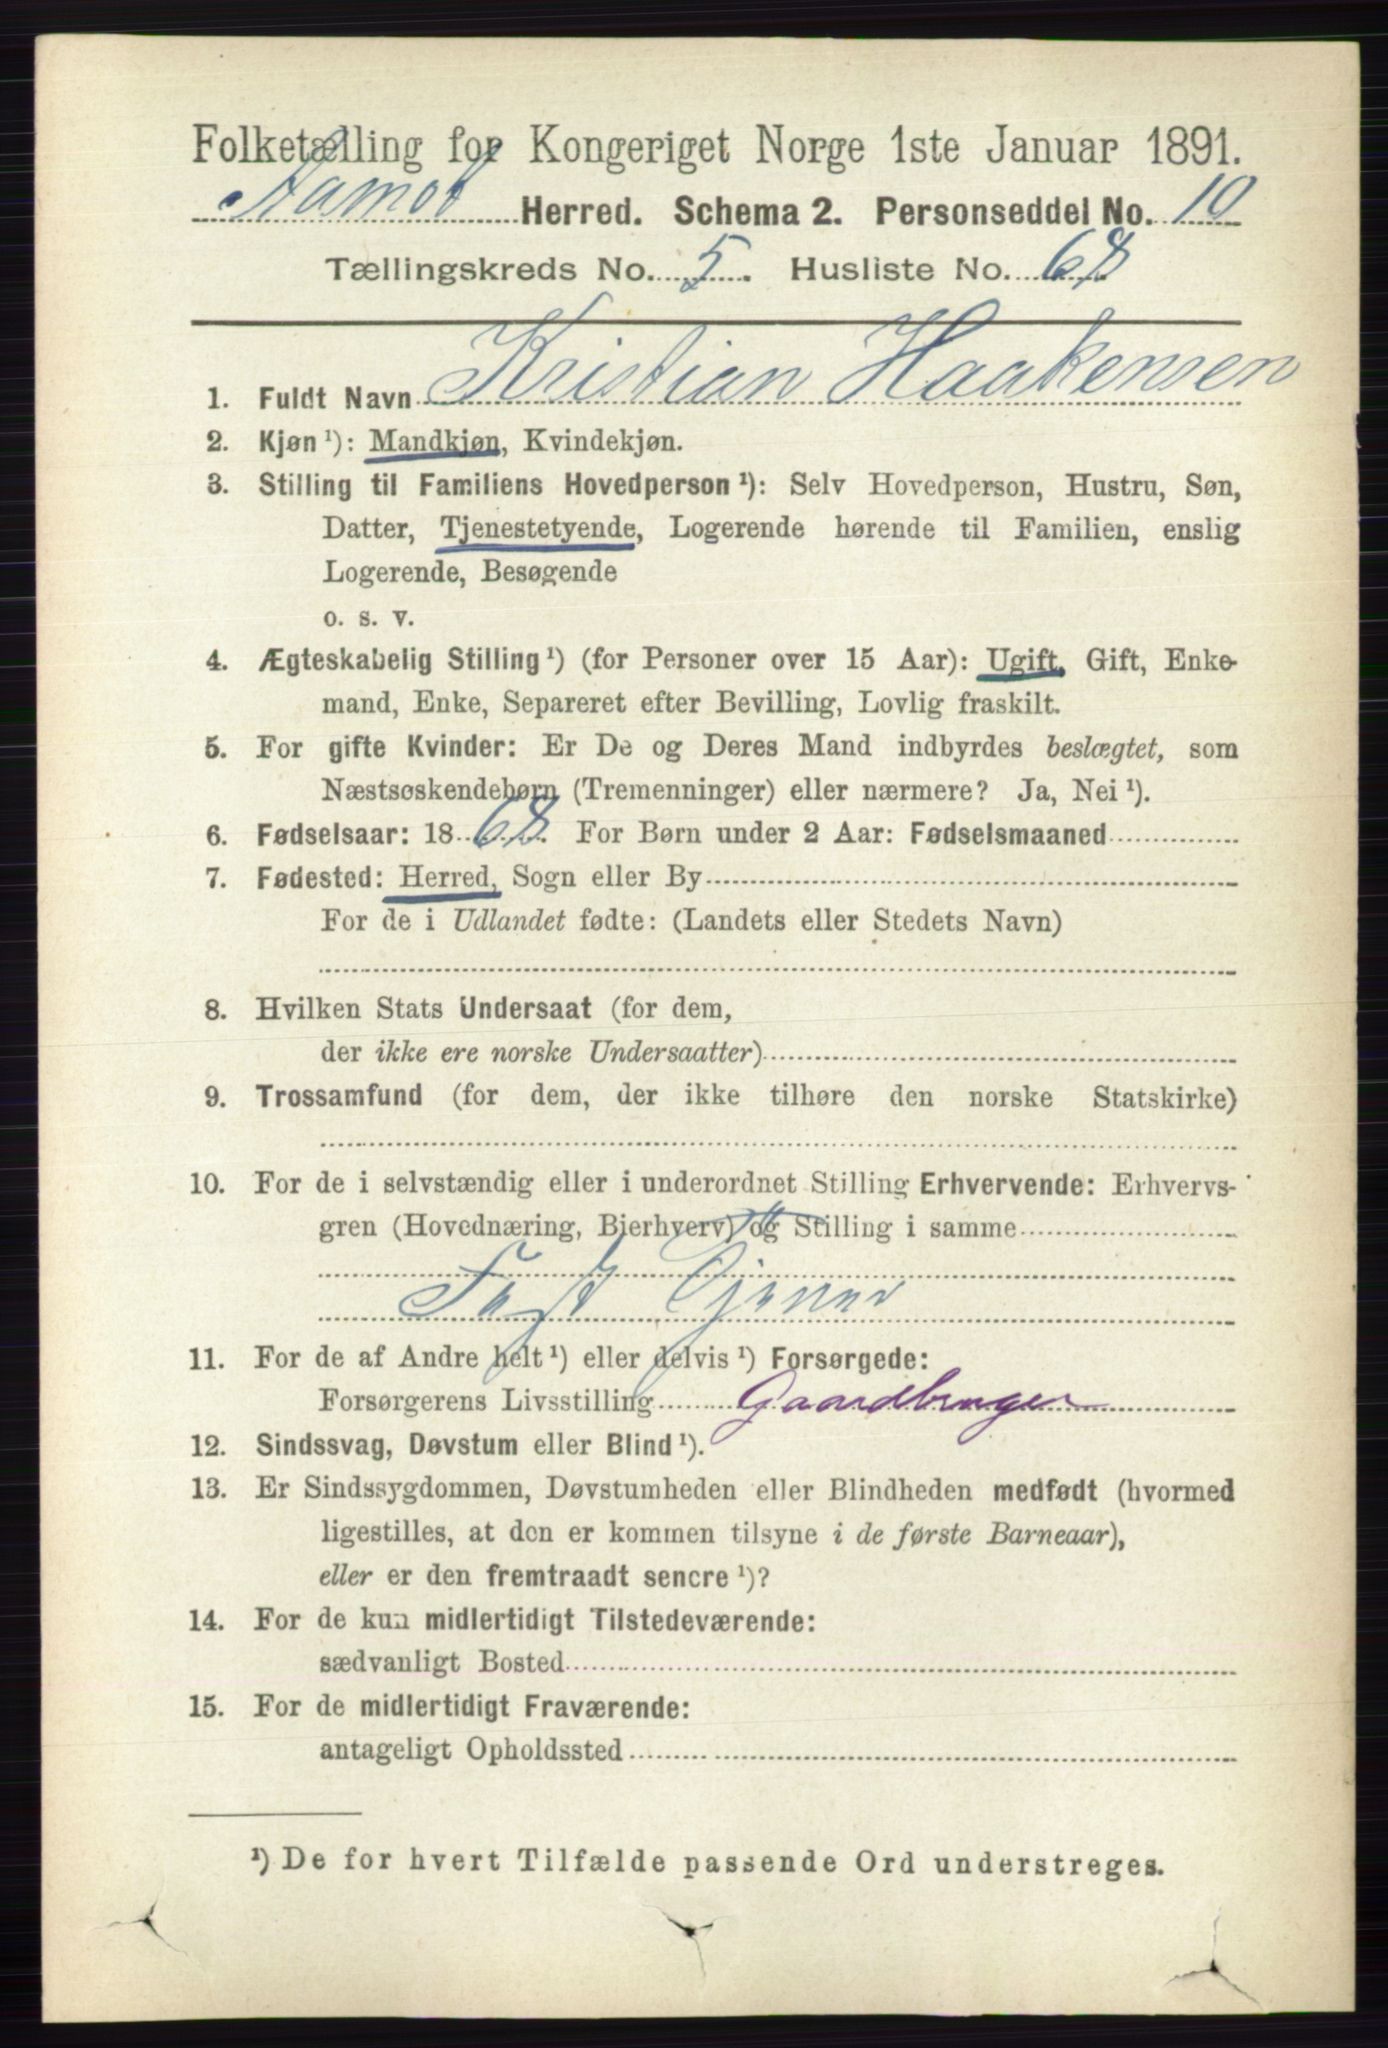 Folketælling for Kongeriget Norge 1ste Januar 1891.
Aamot Herred. Schema 2. Personseddel No. 10
Tællingskreds No. 5. Husliste No. 68
1. Fuldt Navn Kristian Haakensen
2. Kjøn ¹): Mandkjøn, Kvindekjøn.
3. Stilling til Familiens Hovedperson ¹): Selv Hovedperson, Hustru, Søn,
Datter, Tjenestetyende, Logerende hørende til Familien, enslig
Logerende, Besøgende
o. s. v.
4. Ægteskabelig Stilling ¹) (for Personer over 15 Aar): Ugift, Gift, Enke-
mand, Enke, Separeret efter Bevilling, Lovlig fraskilt.
5. For gifte Kvinder: Er De og Deres Mand indbyrdes beslægtet, som
Næstsøskendebørn (Tremenninger) eller nærmere? Ja, Nei ¹).
6. Fødselsaar: 1868. For Børn under 2 Aar: Fødselsmaaned
7. Fødested: Herred, Sogn eller By
For de i Udlandet fødte: (Landets eller Stedets Navn)
8. Hvilken Stats Undersaat (for dem,
der ikke ere norske Undersaatter)
9. Trossamfund (for dem, der ikke tilhøre den norske Statskirke)
10. For de i selvstændig eller i underordnet Stilling Erhvervende: Erhvervs-
gren (Hovednæring, Bierhverv) og Stilling i samme
Fast Tjener
11. For de af Andre helt ¹) eller delvis ¹) Forsørgede:
Forsørgerens Livsstilling Gaardbruger
12. Sindssvag, Døvstum eller Blind ¹).
13. Er Sindssygdommen, Døvstumheden eller Blindheden medfødt (hvormed
ligestilles, at den er kommen tilsyne i de første Barneaar),
eller er den fremtraadt senere ¹)?
14. For de kun midlertidigt Tilstedeværende:
sædvanligt Bosted
15. For de midlertidigt Fraværende:
antageligt Opholdssted
¹) De for hvert Tilfælde passende Ord understreges.